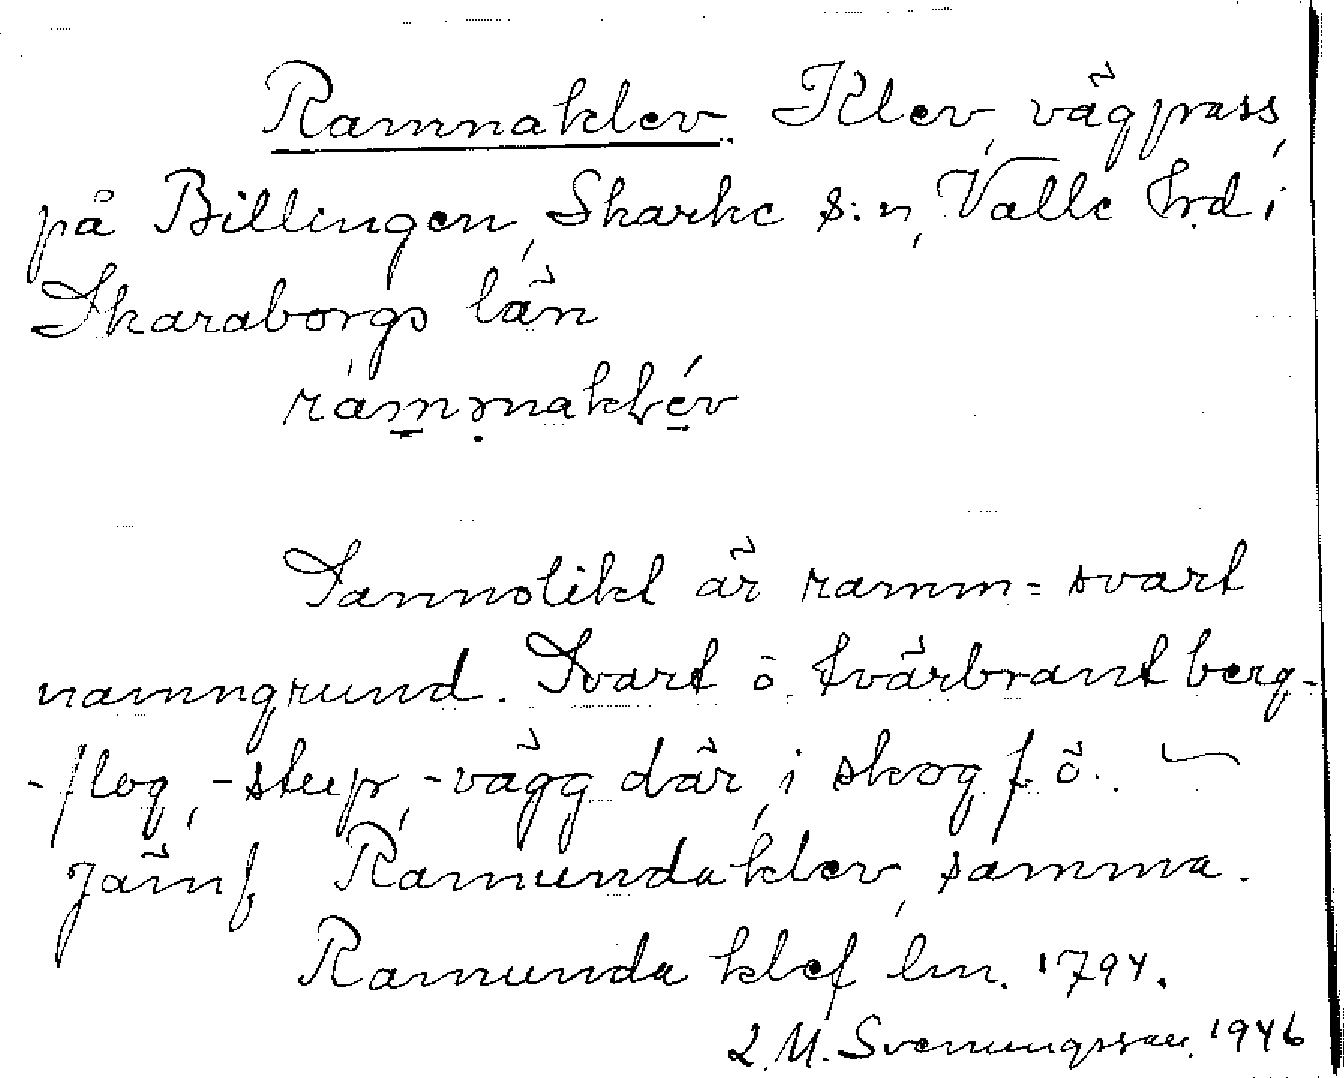 Ramnaklev. Klev, vägpass,
på Billingen, Skarke s:n, Valle hrd i
Skaraborgs län
rámmnaklév
Sannolikt är ramm = svart
namngrund. Svart o. tvärbrant berg-
-flog, -stup, -vägg där, i skog f ö.
Jämf Ramundaklev, samma.
Ramunda klef lm. 1794.
L. M. Svenungsson. 1946